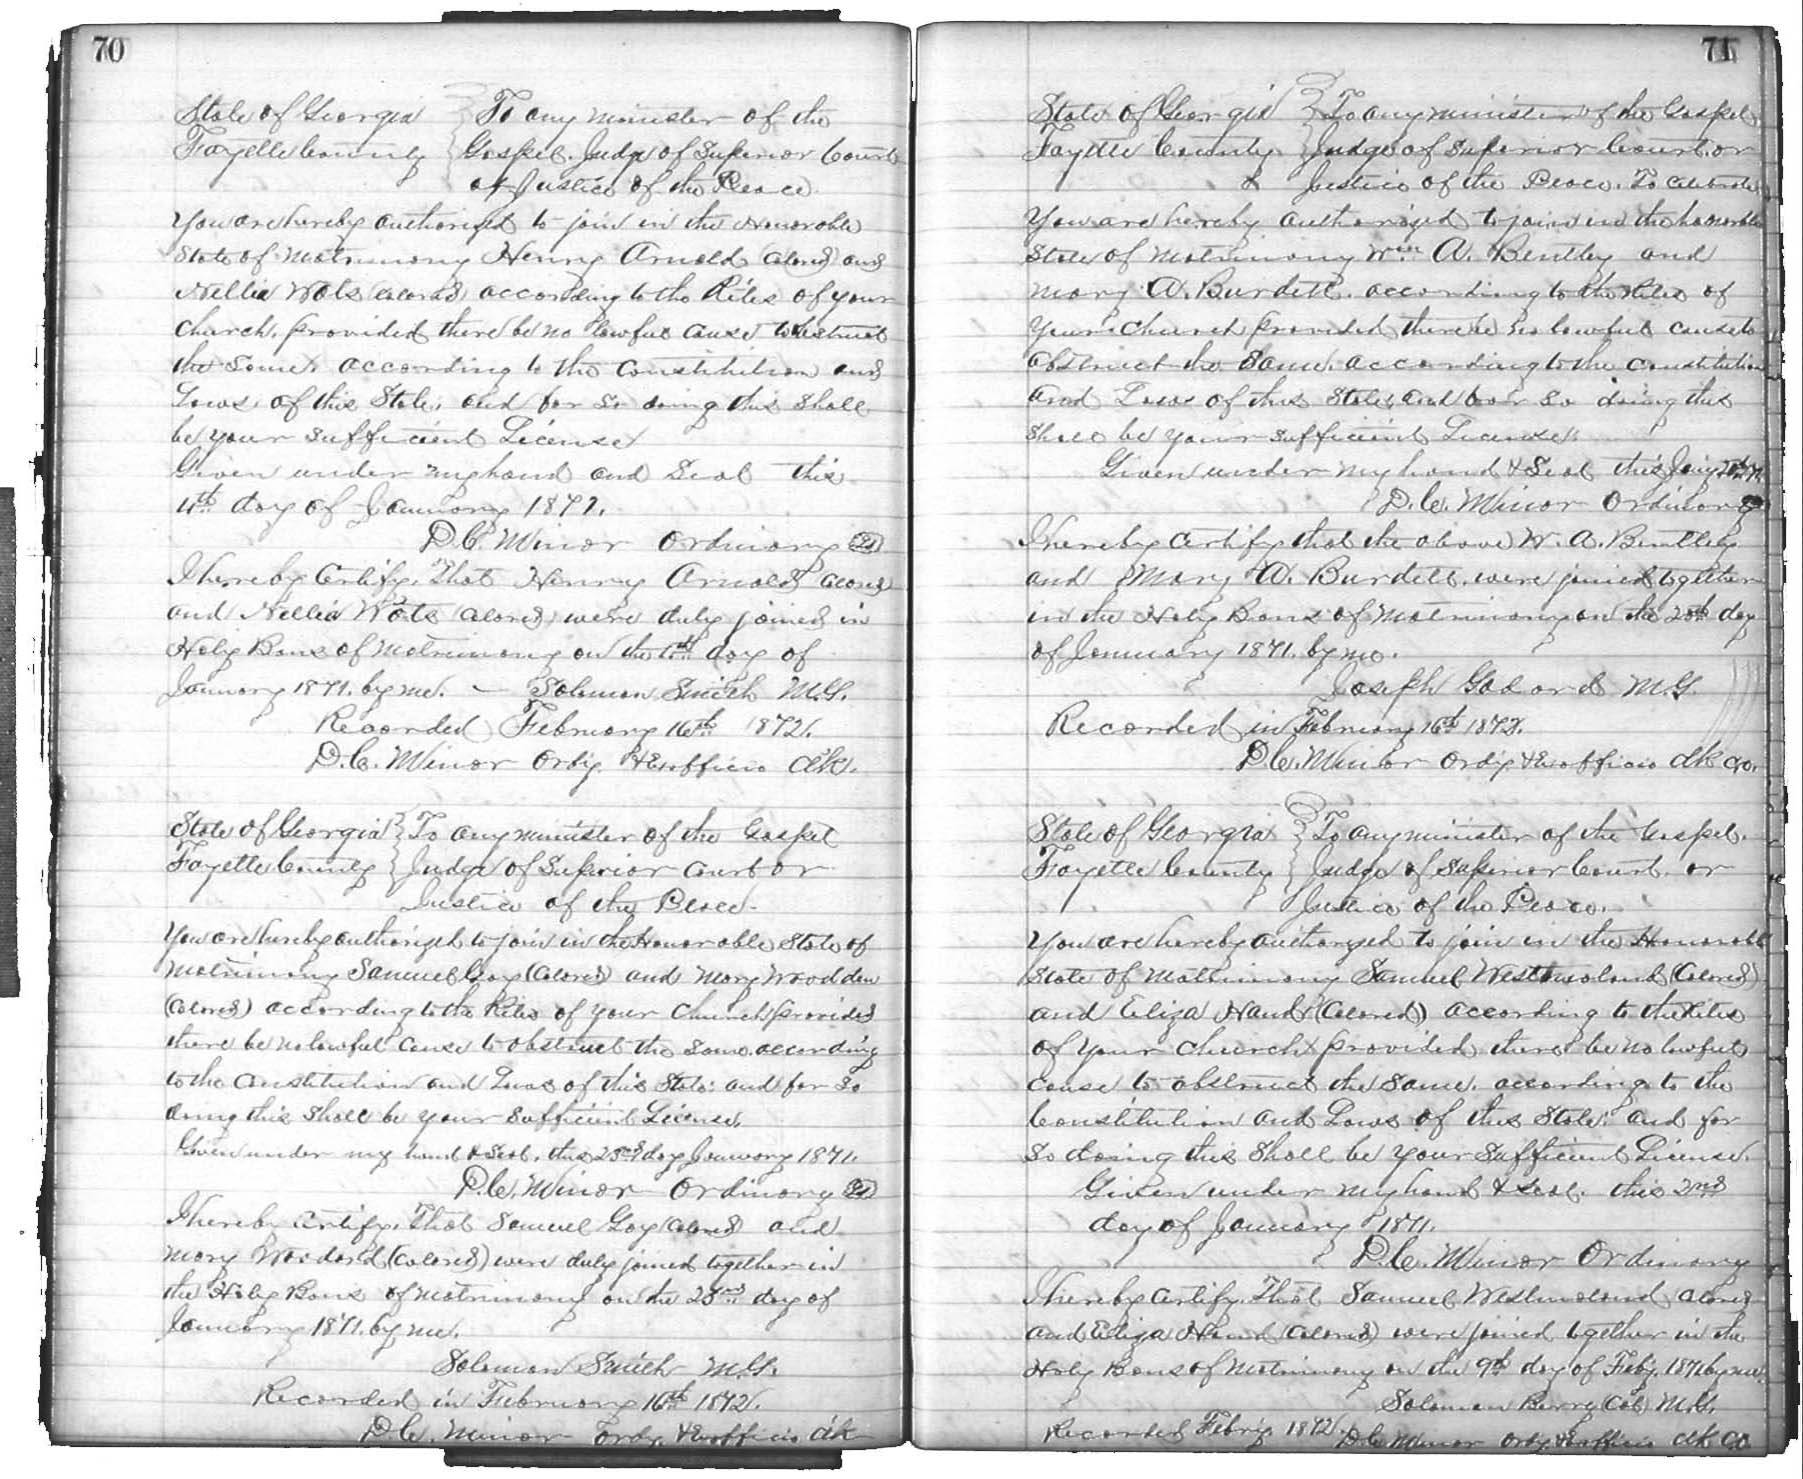 70
State of Georgia } To any minister of the
Fayette County } Gospel. Judge of Superior Court
or Justice of the Peace
You are hereby authorized to join in the Honorable
State of Matrimony Henry Arnold (Colored) and
Nellie Wats (Colored) according to the Rites of your
Church, provided there be no lawful cause to obstruct
the same according to the Constitution and
Laws of this State, and for so doing this shall
be your sufficient License
Given under my hand and Seal this
day of January 1871.
D.C. Minor Ordinary (LS)
I hereby Certify, That Henry Arnold Colored
and Nellie Wats (Colored) were duly joined in
Holy Bans of Matrimony on the day of
January 1871. by me. — Solomon Smith M.G.
Recorded February 16th 1872.
D.C. Minor Ordy. & Exofficio Clk.
State of Georgia } To any minister of the Gospel
Fayette County } Judge of Superior Court or
Justice of the Peace.
You are hereby authorized to join in the Honorable State of
Matrimony Samuel Gay (Colored) and Mary Woodden
(Colored) according to the Rites of your Church provided
there be no lawful cause to obstruct the same according
to the Constitution and Laws of this State: and for so
doing this shall be your sufficient License.
Given under my hand & Seal. this day January 1871.
D.C. Minor Ordinary (LS)
I hereby Certify. That Samuel Gay (Colored) and
Mary (Colored) were duly joined together in
the Holy Bans of Matrimony on the day of
January 1871. by me.
Solomon Smith M.G.
Recorded in February 16th 1872.
D.C. Minor Ordy. & Exofficio Clk
71
State of Georgia } To any minister of the Gospel
Fayette County } Judge of Superior Court or
& Justice of the Peace. To celebrate
You are hereby authorized to join in the honorable
State of Matrimony Wm A. Bentley and
Mary A. Burdett. according to the Rites of
your Church provided there be no lawful cause to
obstruct the same. according to the Constitution
and Laws of this State, and for so doing this
shall be your sufficient License.
Given under my hand & Seal this Jany
D.C. Minor Ordinary
I hereby Certify that the above W. A. Bentley
and Mary A. Burdett. were joined together
in the Holy Bans of Matrimony on the 20th day
of January 1871. by me.
Joseph Godard M.G.
Recorded in February 16th 1872.
D.C. Minor Ordy & Exofficio Clk Co.
State of Georgia } To any minister of the Gospel.
Fayette County } Judge of Superior Court. or
Justice of the Peace.
You are hereby authorized to join in the Honorable
State of Matrimony Samuel Westmoland (Colored)
and Eliza Hand (Colored) according to the Rites
of your Church provided there be no lawful
cause to obstruct the same. according to the
Constitution and Laws of this State: and for
so doing this shall be your sufficient License.
Given under my hand & seal. this 2nd
day of January 1871.
D.C. Minor Ordinary
I hereby Certify. That Samuel Westmoland Colored
and Eliza Hand (Colored) were joined together in the
Holy Bans of Matrimony on the 9th day of Feby. 1871 by me.
Solomon Berry (Col) M.G.
Recorded Febry 1872. D.C. Minor Ordy & Exofficio Clk Co